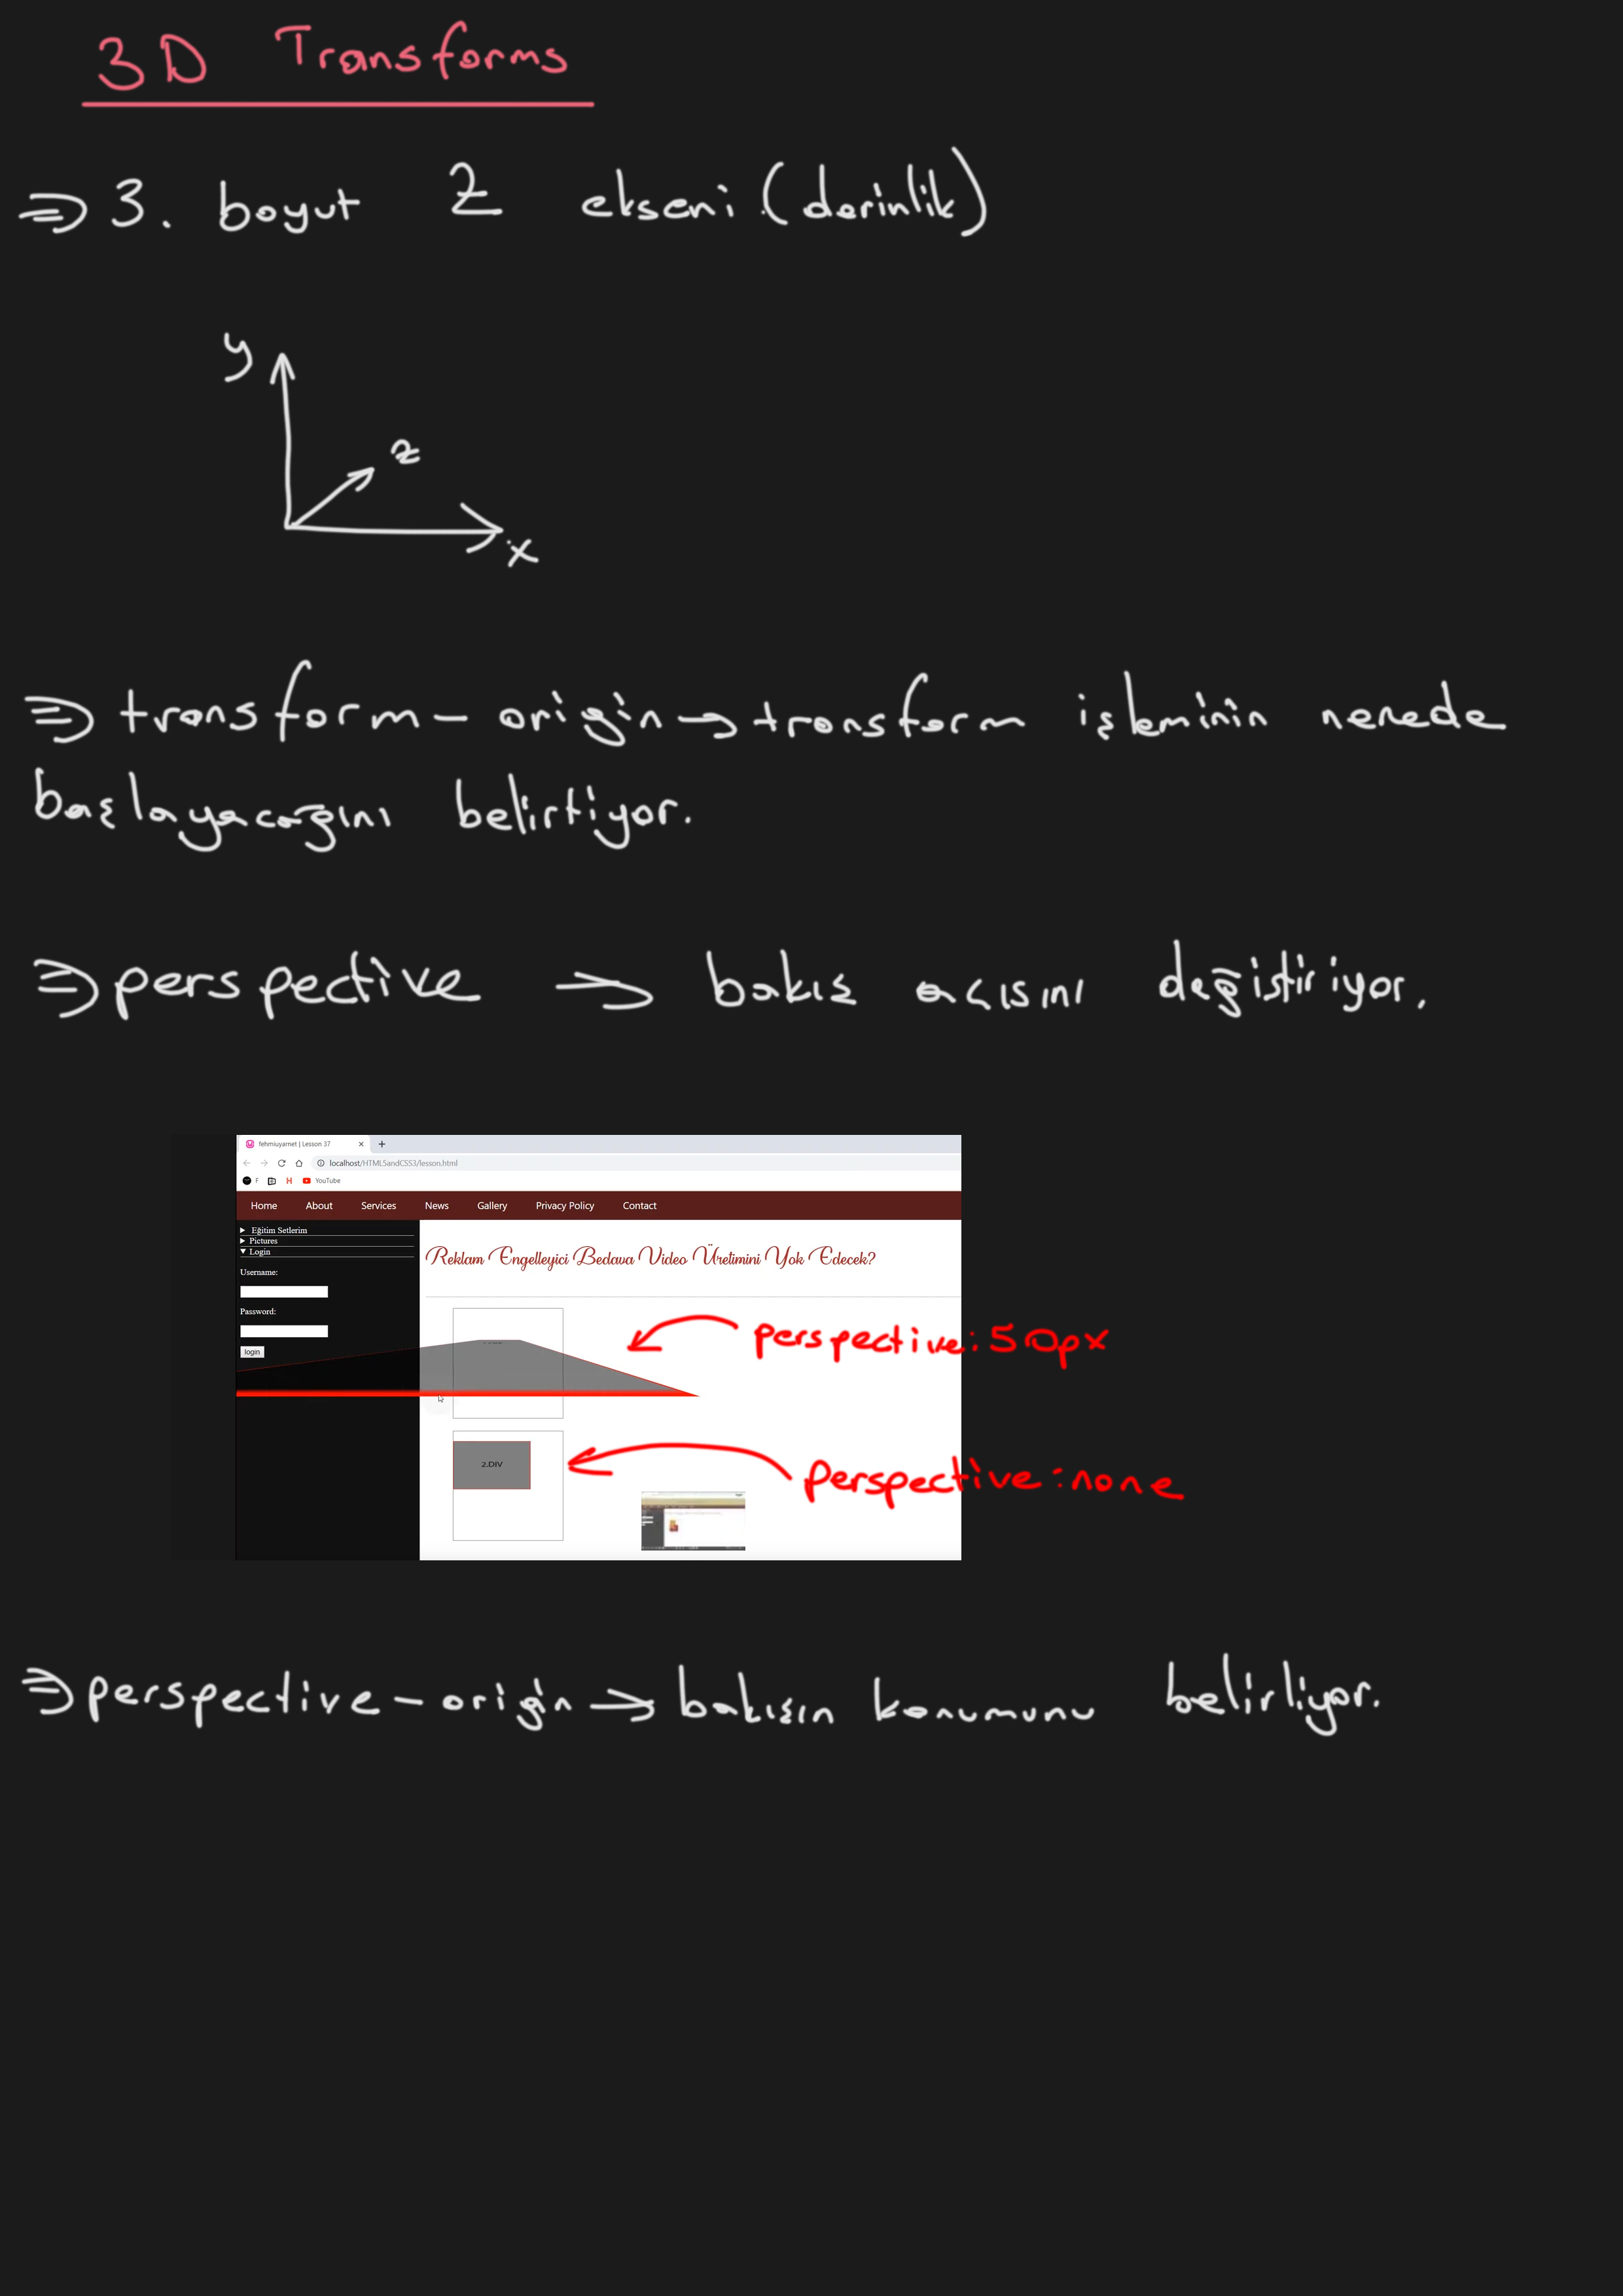 3D Transforms
⇒ 3. boyut Z ekseni (derinlik)
y
z
x
⇒ transform-origin → transform işleminin nerede
başlayacağını belirtiyor.
⇒ perspective → bakış açısını değiştiriyor.
fehmiuyarnet | Lesson 37
localhost/HTML5andCSS3/lesson.html
F H YouTube
Home About Services News Gallery Privacy Policy Contact
Eğitim Setlerim
Pictures
Login
Username:
Password:
login
Reklam Engelleyici Bedava Video Üretimini Yok Edecek?
perspective: 50px
2.DIV
perspective: none
⇒ perspective-origin → bakışın konumunu belirliyor.